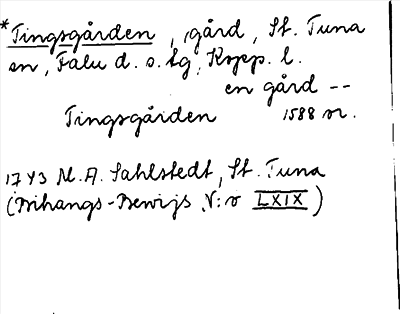 *Tingsgården, gård, St. Tuna
sn, Falu d. s. tg, Kopp. l.
en gård --
Tingsgården 1588 nr.
1743 M. A. Sahlstedt, St. Tuna
(Bihangs-Bewijs N:o LXIX)